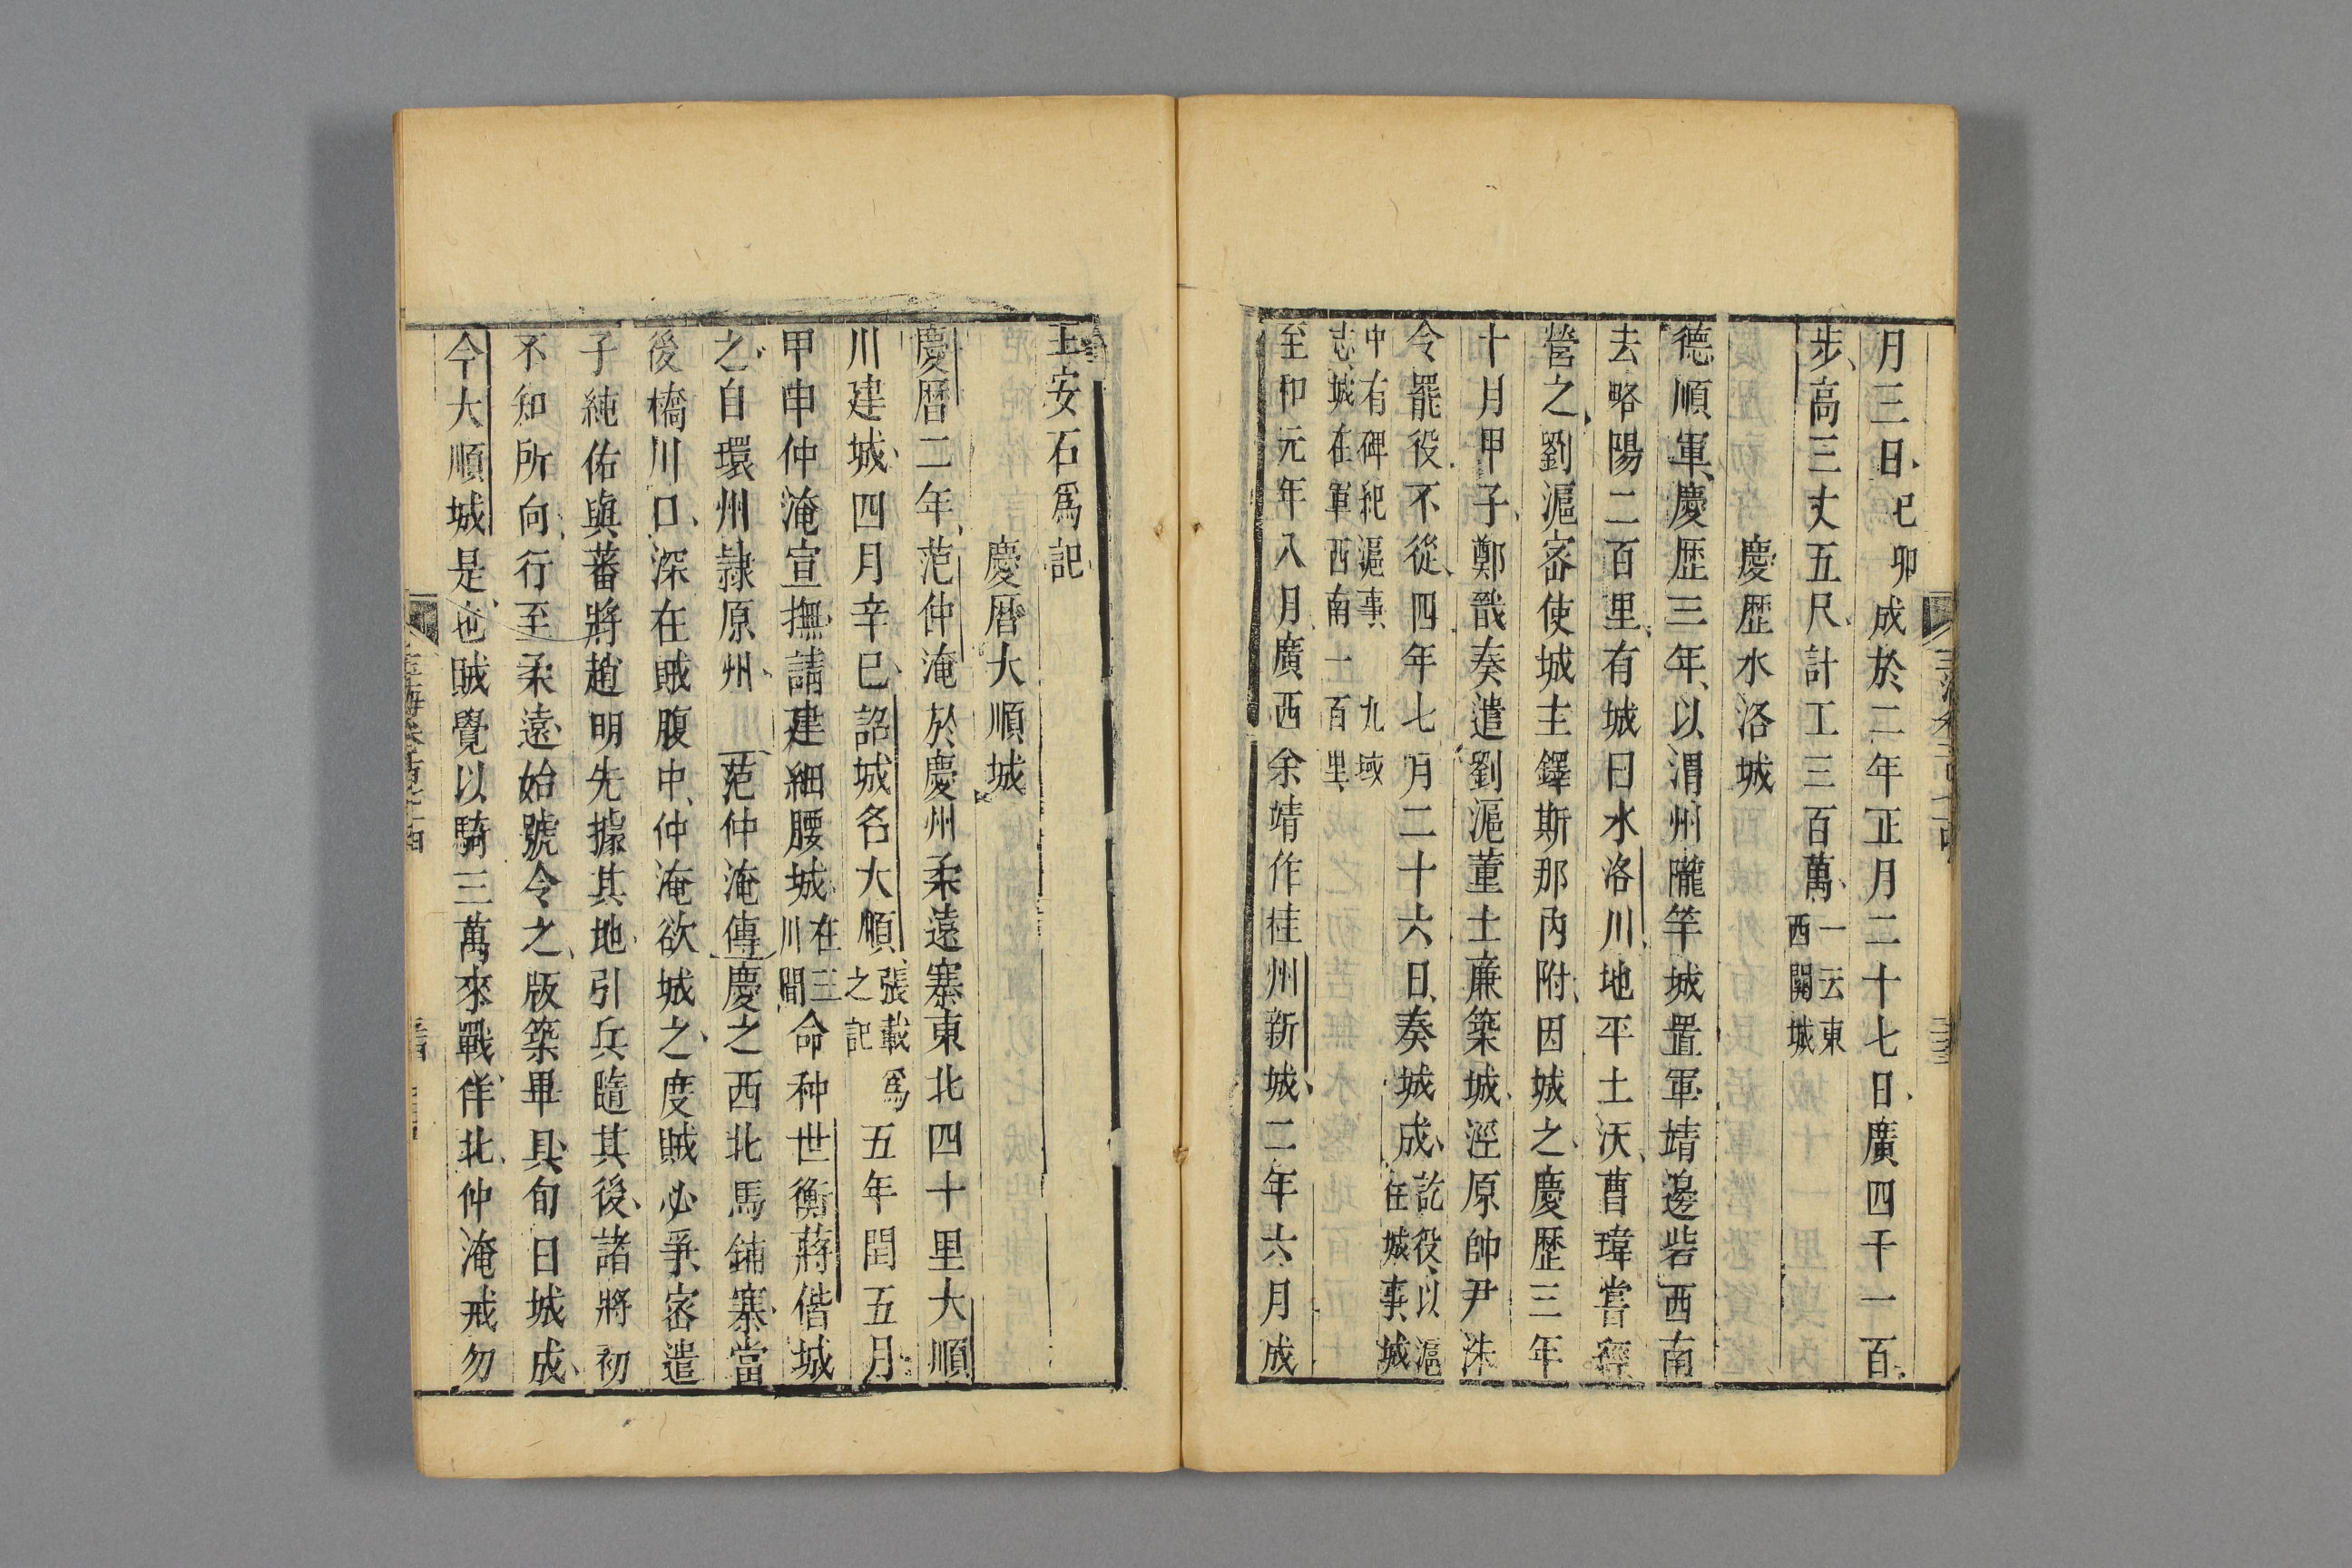 月三日己卯成於二年正月二十七日廣四千一百
步高三丈五尺計工三百萬一云東西關城
慶歷水洛城
德順軍慶歷三年以渭州隴竿城置軍靖邊砦西南
去略陽二百里有城曰水洛川地平土沃曹瑋嘗經
營之劉滬密使城主鐸斯那內附因城之慶歷三年
十月甲子鄭戩奏遣劉滬董士廉築城涇原帥尹洙
令罷役不從四年七月二十六日奏城成訖役以滬任城事城
中有碑紀滬事九域志城在軍西南一百里
至和元年八月廣西余靖作桂州新城二年六月成
王安石爲記
慶曆大順城
慶曆二年范仲淹於慶州柔遠寨東北四十里大順
川建城四月辛巳詔城名大順張載爲之記五年閏五月
甲申仲淹宣撫請建細腰城在三川間命种世衡蔣偕城
之自環州隷原州范仲淹傳慶之西北馬鋪寨當
後橋川口深在賊腹中仲淹欲城之度賊必爭密遣
子純佑與蕃將趙明先據其地引兵隨其後諸將初
不知所向行至柔遠始號令之版築畢具旬日城成
今大順城是也賊覺以騎三萬來戰佯北仲淹戒勿